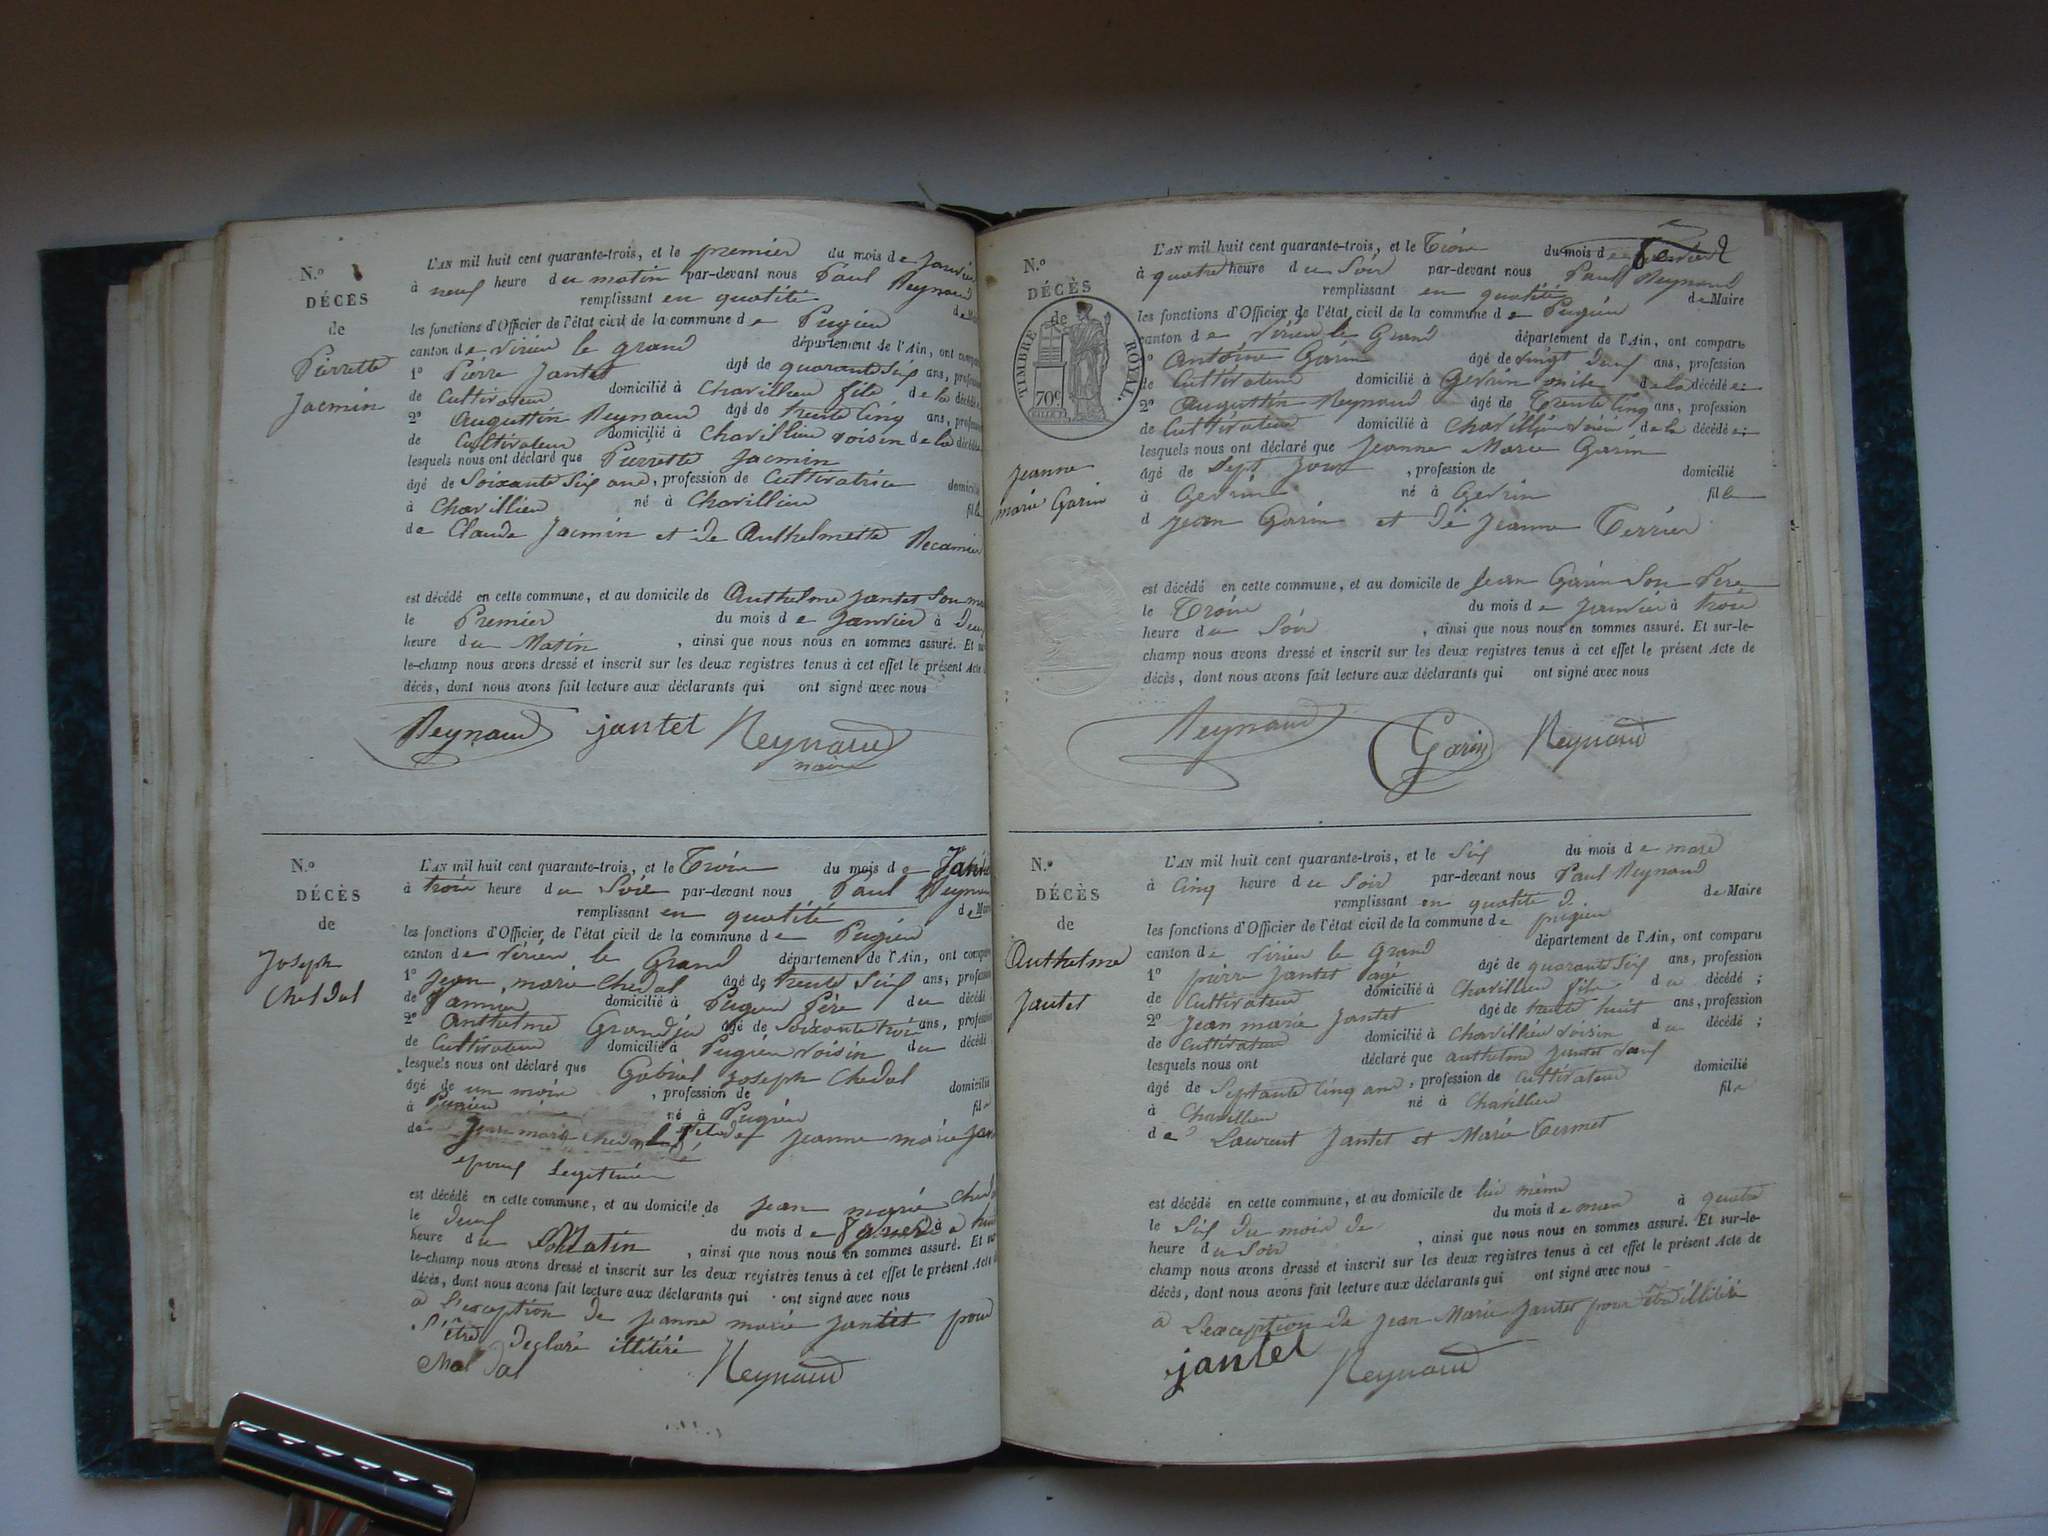 N.º 1
DÉCÈS
de
Pierrette
Jacmin
L'AN mil huit cent quarante-trois, et le premier du mois de Janvier
à neuf heure du matin par-devant nous Paul Reynaud
remplissant en quatité de Maire
les fonctions d'Officier de l'état civil de la commune de Pugieu
canton de virieu le grand département de l'Ain, ont comparu
1º Pierre Jantet âgé de quarante six ans, profession
de Cultivateur domicilié à Chavillieu fils de la décédée
2º Augustin Reynaud âgé de trente cinq ans, profession
de Cultivateur domicilié à Chavillieu voisin de la décédée
lesquels nous ont déclaré que Pierrette Jacmin
âgé de Soixante Six ans, profession de Cultivatrice domicilié
à Chavillieu né à Chavillieu fille
de Claude Jacmin et de Anthelmette Recamier
est décédé en cette commune, et au domicile de Anthelme Jantet Son
le Premier du mois de Janvier à Deux
heure du Matin, ainsi que nous nous en sommes assuré. Et sur-
le-champ nous avons dressé et inscrit sur les deux registres tenus à cet effet le présent Acte de
décès, dont nous avons fait lecture aux déclarants qui ont signé avec nous
Reynaud jantet Reynaud
maire
N.º
DÉCÈS
de
Joseph
Chedal
L'AN mil huit cent quarante-trois, et le Trois du mois de Janvier
à trois heure du Soir par-devant nous Paul Reynaud
remplissant en quatité de Maire
les fonctions d'Officier de l'état civil de la commune de Pugieu
canton de virieu le Grand département de l'Ain, ont comparu
1º Jean marie Chedal âgé de trente Six ans, profession
de domicilié à Pugieu Père du décédé
2º Anthelme Grandju âgé de Soixante trois ans, profession
de Cultivateur domicilié à Pugieu voisin du décédé
lesquels nous ont déclaré que Gabriel Joseph Chedal
âgé de un mois, profession de domicilié
à Pugieu né à Pugieu fils
de Jean marie chedal et de Jeanne marie
epoux Legitime
est décédé en cette commune, et au domicile de Jean marie
le deux du mois de à
heure du Matin, ainsi que nous nous en sommes assuré. Et sur-
le-champ nous avons dressé et inscrit sur les deux registres tenus à cet effet le présent Acte de
décès, dont nous avons fait lecture aux déclarants qui ont signé avec nous
a l'exception de Jeanne marie Jantet pour
s'être declaré illitéré
Reynaud
N.º
DÉCÈS
de
TIMBRE ROYAL.
70c
Jeanne
marie Garin
L'AN mil huit cent quarante-trois, et le Trois du mois de
à quatre heure du Soir par-devant nous Paul Reynaud
remplissant en quatité de Maire
les fonctions d'Officier de l'état civil de la commune de Pugieu
canton de virieu le Grand département de l'Ain, ont comparu
1º Antoine Garin âgé de vingt deux ans, profession
de Cultivateur domicilié à Gevrin de la décédée;
2º Augustin Reynaud âgé de Trente Cinq ans, profession
de Cultivateur domicilié à Chavillieu voisin de la décédée;
lesquels nous ont déclaré que Jeanne Marie Garin
âgé de Sept Jours, profession de domicilié
à Gevrin né à Gevrin fille
d Jean Garin et de Jeanne Terrier
est décédé en cette commune, et au domicile de Jean Garin Son Père
le Trois du mois de Janvier à trois
heure du Soir, ainsi que nous nous en sommes assuré. Et sur-le-
champ nous avons dressé et inscrit sur les deux registres tenus à cet effet le présent Acte de
décès, dont nous avons fait lecture aux déclarants qui ont signé avec nous
Reynaud Garin Reynaud
N.º
DÉCÈS
de
Anthelme
Jantet
L'AN mil huit cent quarante-trois, et le Six du mois de mars
à Cinq heure du Soir par-devant nous Paul Reynaud
remplissant en qualité d. de Maire
les fonctions d'Officier de l'état civil de la commune de pugieu
canton de virieu le Grand département de l'Ain, ont comparu
1º pierre Jantet agé âgé de quarante Six ans, profession
de Cultivateur domicilié à Chavillieu fils du décédé;
2º Jean marie Jantet âgé de trente huit ans, profession
de Cultivateur domicilié à Chavillieu voisin du décédé;
lesquels nous ont déclaré que anthelme Jantet veuf
âgé de Septante Cinq ans, profession de Cultivateur domicilié
à Chavillieu né à Chavillieu fils
de Laurent Jantet et Marie Termet
est décédé en cette commune, et au domicile de lui même
le Six du mois de du mois de mars à quatre
heure du Soir, ainsi que nous nous en sommes assuré. Et sur-le-
champ nous avons dressé et inscrit sur les deux registres tenus à cet effet le présent Acte de
décès, dont nous avons fait lecture aux déclarants qui ont signé avec nous
a L'exception de Jean Marie Jantet pour être illitéré
jantet Reynaud